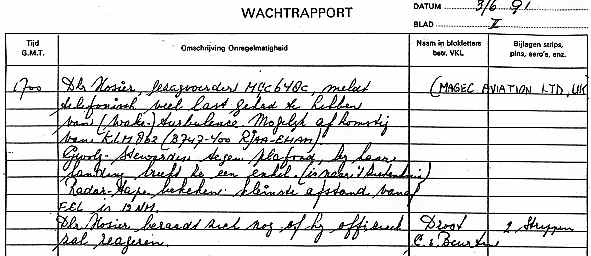 WACHTRAPPORT
DATUM 3/6 91
BLAD I
Tijd G.M.T.
Omschrijving Onregelmatigheid
Naam in blokletters betr. VKL
Bijlagen strips, pins, aero's, enz.
1700 Dhr Hosier, gezagvoerder MGC648C, meldt (MAGEC AVIATION LTD, UK
telefonisch veel last gehad te hebben
van (Wake-) turbulence. Mogelijk afkomstig
van KLM 862 (B747-400 RJAA-EHAM).
Gevolg - Stewardess tegen plafond, bij haar
landing breekt ze een enkel. (is naar 't
Radar-tape bekeken: kleinste afstand vanaf
EEL is 12 NM.
Dhr Hosier beraadt zich nog of hij officieel Droot 2 Strippen
zal reageren. C. v.